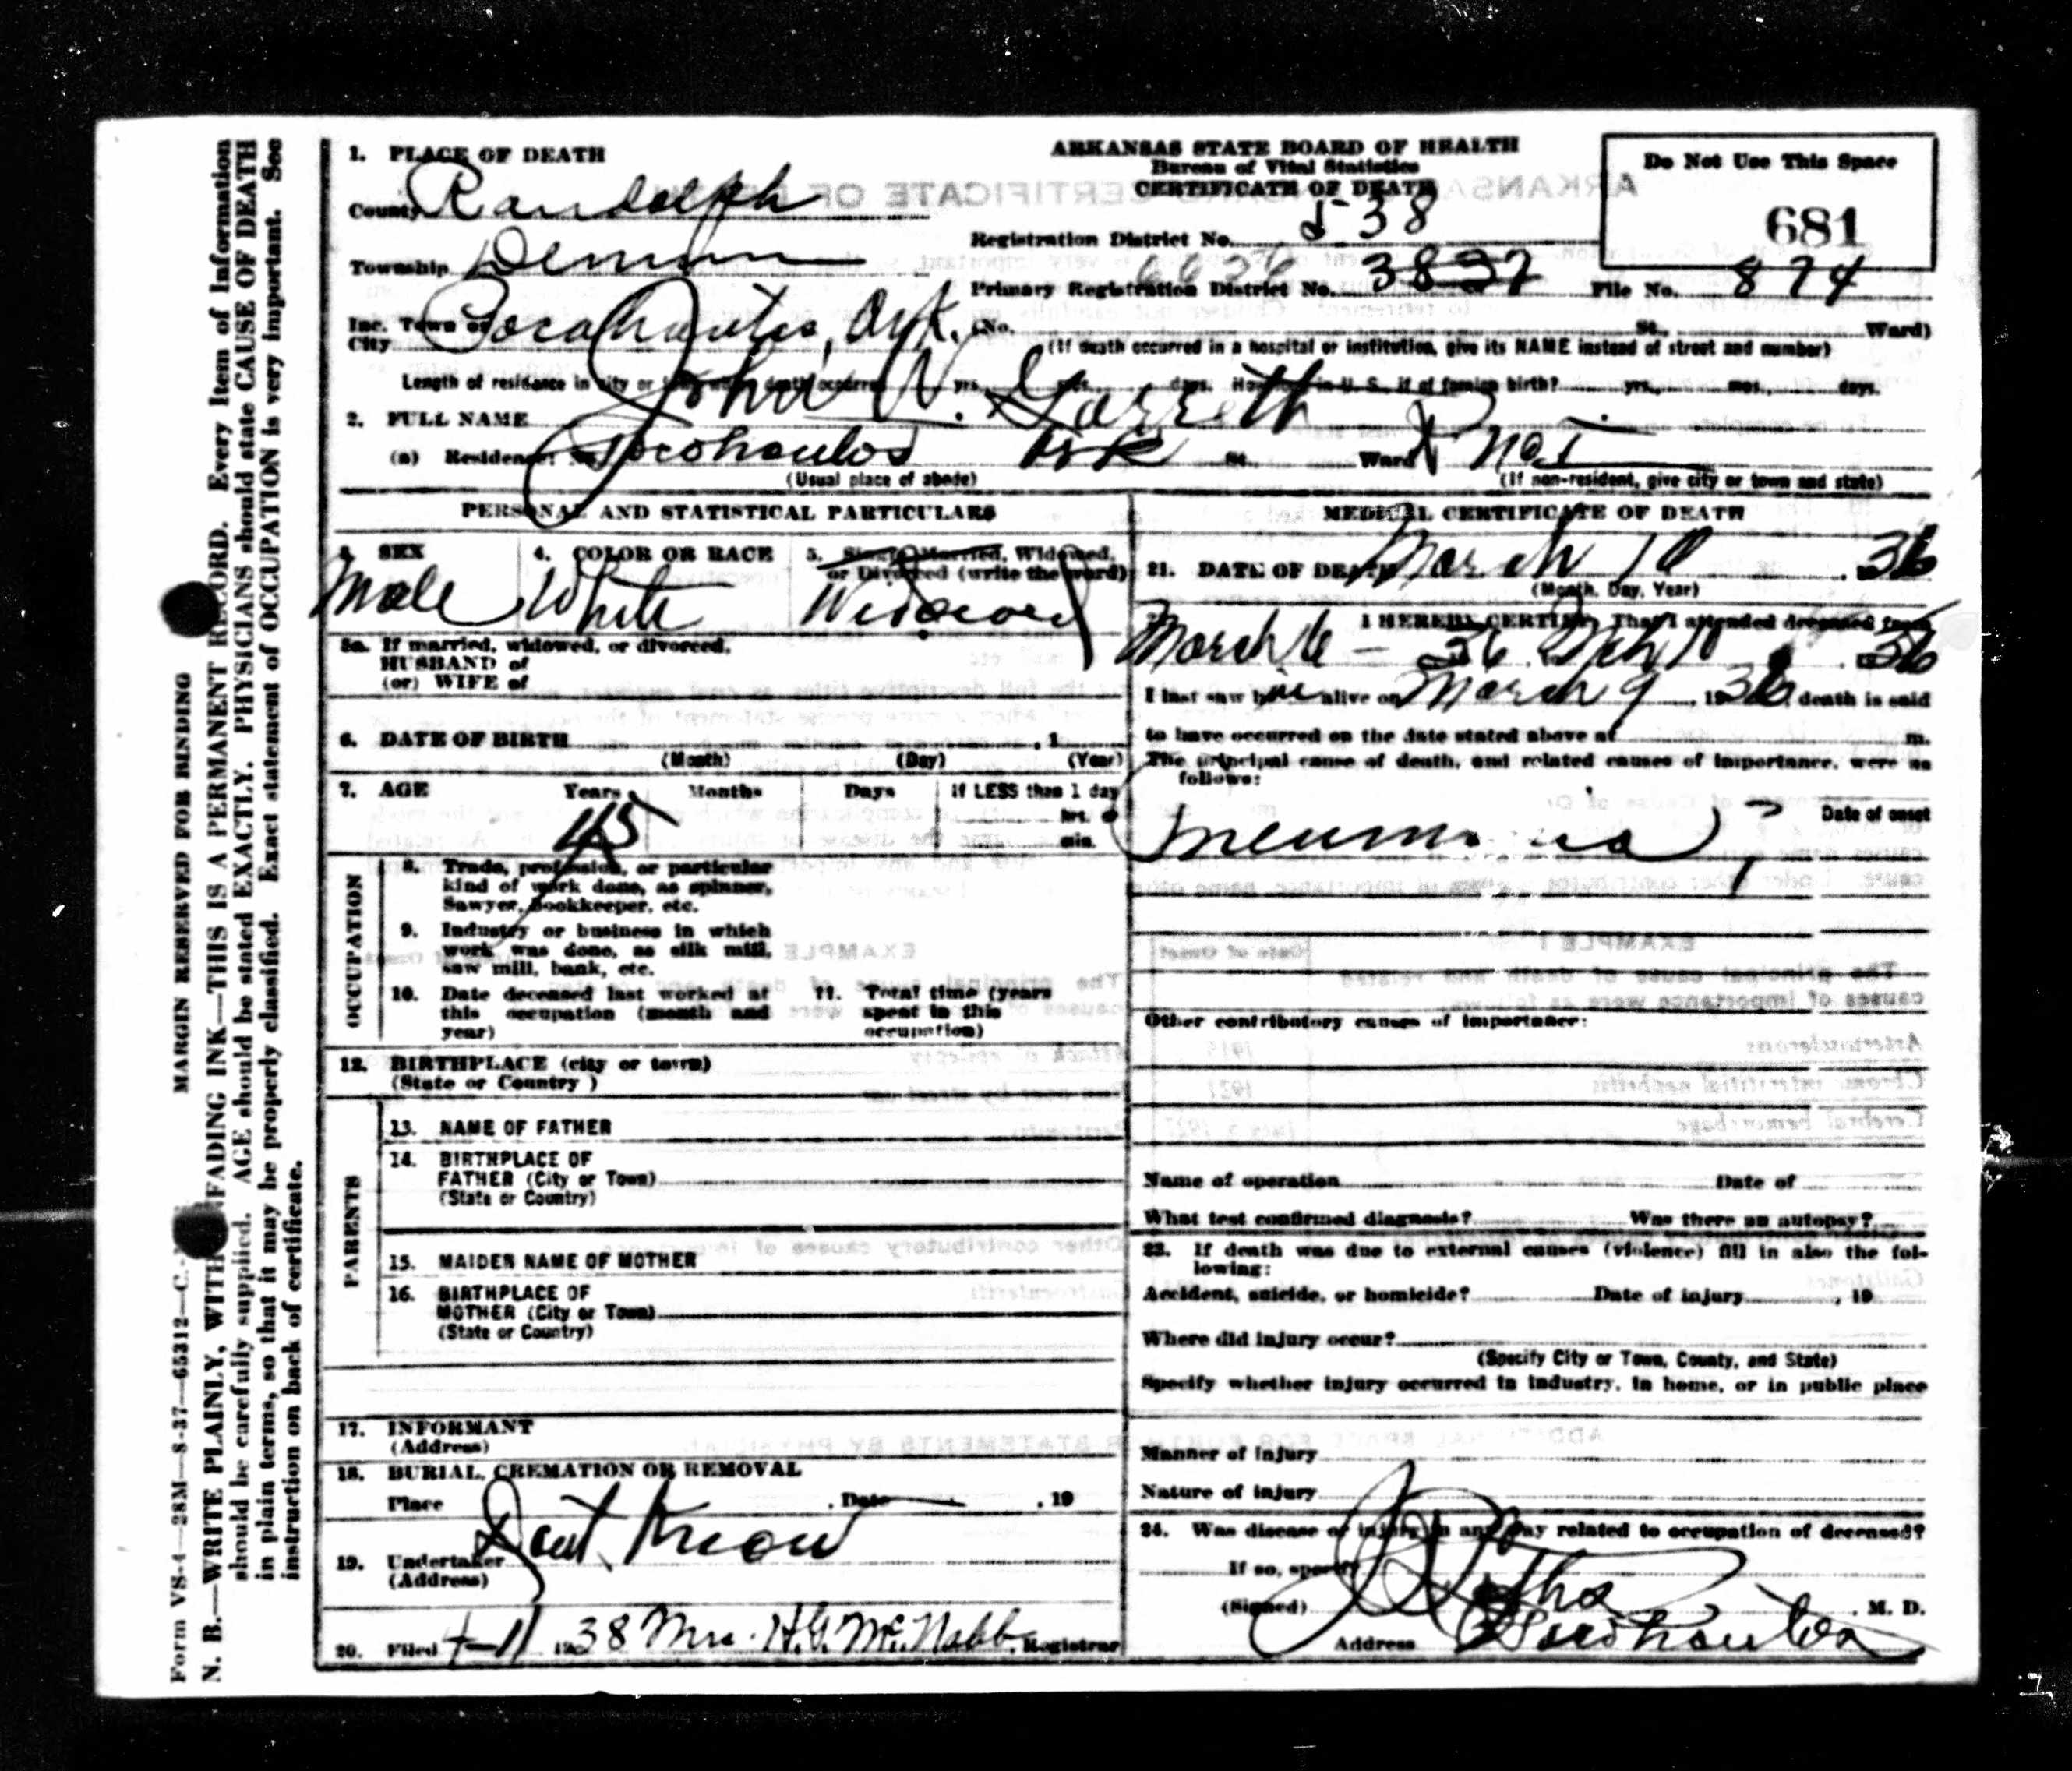 ARKANSAS STATE BOARD OF HEALTH
Bureau of Vital Statistics
CERTIFICATE OF DEATH
Do Not Use This Space
681
1. PLACE OF DEATH
County Randolph
Registration District No. 538
Township Demun
Primary Registration District No. 6636 3837 File No. 874
Inc. Town or City Pocahontas, Ark. (No. St., Ward)
(If death occurred in a hospital or institution, give its NAME instead of street and number)
Length of residence in city or town where death occurred yrs. mos. days. How long in U. S., if of foreign birth? yrs., mos., days.
2. FULL NAME John W. Garreth
(a) Residence: No. Pocohontas Ark St. Ward
(Usual place of abode) (If non-resident, give city or town and state)
PERSONAL AND STATISTICAL PARTICULARS
3. SEX Male
4. COLOR OR RACE White
5. Single, Married, Widowed, or Divorced (write the word)
5a. If married, widowed, or divorced,
HUSBAND of
(or) WIFE of
6. DATE OF BIRTH , 1
(Month) (Day) (Year)
7. AGE Years 45 Months Days If LESS than 1 day
hrs. or
min.
OCCUPATION
8. Trade, profession, or particular
kind of work done, as spinner,
Sawyer, Bookkeeper, etc.
9. Industry or business in which
work was done, as silk mill,
saw mill, bank, etc.
10. Date deceased last worked at
this occupation (month and
year)
11. Total time (years
spent in this
occupation)
12. BIRTHPLACE (city or town)
(State or Country )
PARENTS
13. NAME OF FATHER
14. BIRTHPLACE OF
FATHER (City or Town)
(State or Country)
15. MAIDEN NAME OF MOTHER
16. BIRTHPLACE OF
MOTHER (City or Town)
(State or Country)
17. INFORMANT
(Address)
18. BURIAL, CREMATION OR REMOVAL
Place , Date , 19
Dont Know
19. Undertaker
(Address)
20. Filed 4-11 1938 Mrs. H.G. McNabb, Registrar
MEDICAL CERTIFICATE OF DEATH
21. DATE OF DEATH March 10 36
(Month, Day, Year)
I HEREBY CERTIFY, That I attended deceased from
March 6 - 36 Mch 10 36
I last saw him alive on March 9, 1936 death is said
to have occurred on the date stated above at m.
The principal cause of death, and related causes of importance, were as
follows:
Date of onset
Pneumonia
Other contributory causes of importance:
Name of operation Date of
What test confirmed diagnosis? Was there an autopsy?
23. If death was due to external causes (violence) fill in also the fol-
lowing:
Accident, suicide, or homicide? Date of injury , 19
Where did injury occur?
(Specify City or Town, County, and State)
Specify whether injury occurred in industry, in home, or in public place
Manner of injury
Nature of injury
24. Was disease or injury in any way related to occupation of deceased?
If so, specify
(Signed) , M. D.
Address Pocohontas
Form VS-4—28M—8-37—65312—C. MARGIN RESERVED FOR BINDING
N. B.—WRITE PLAINLY, WITH UNFADING INK—THIS IS A PERMANENT RECORD. Every Item of Information
should be carefully supplied. AGE should be stated EXACTLY. PHYSICIANS should state CAUSE OF DEATH
in plain terms, so that it may be properly classified. Exact statement of OCCUPATION is very important. See
instruction on back of certificate.